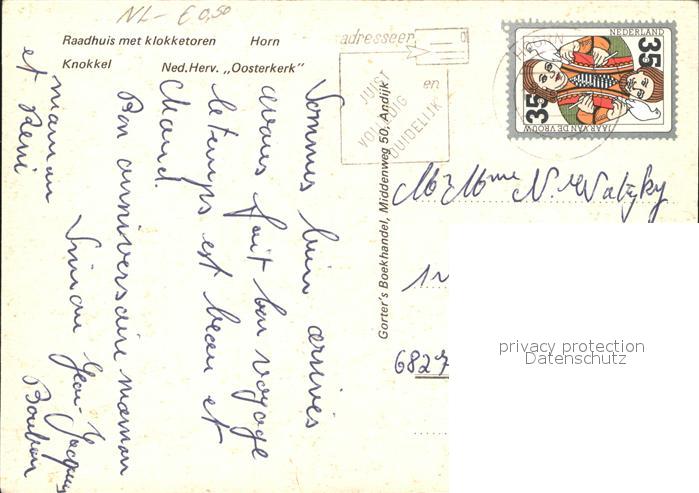 NL- € 0,50
Raadhuis met klokketoren Horn
Knokkel Ned.Herv. „Oosterkerk"
adresseer
JUIST
en
VOLLEDIG
DUIDELIJK
NEDERLAND
35
35
JAAR VAN DE VROUW
Gorter's Boekhandel, Middenweg 50, Andijk
Sommes bien arrivés
avons fait bon voyage
le temps est beau et
chaud.
Bon anniversaire maman
Simon Jean-Jacques
maman
et Rémi
M et Mme N.
6827
privacy protection
Datenschutz